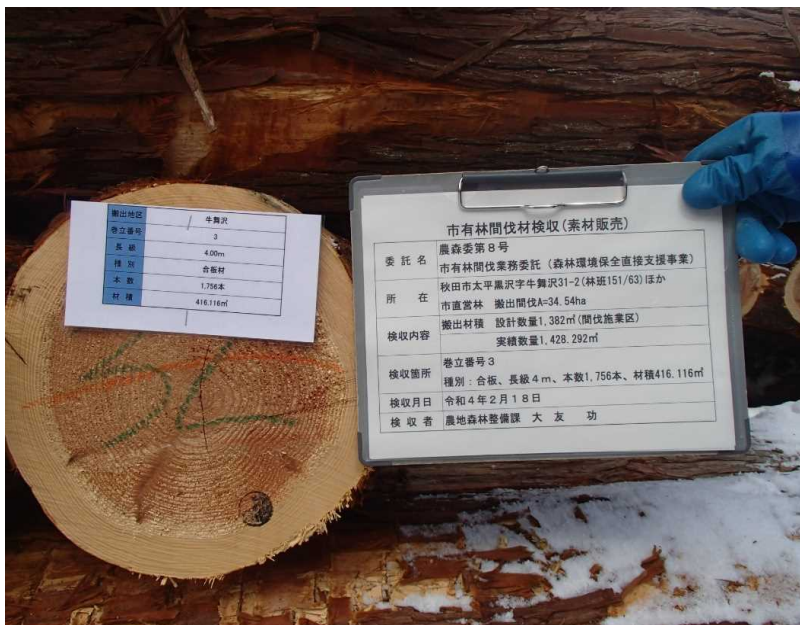 搬出地区 牛舞沢
巻立番号 3
長級 4.00m
種別 合板材
本数 1,756本
材積 416.116㎥
市有林間伐材検収(素材販売)
委託名 農森委第8号
市有林間伐業務委託(森林環境保全直接支援事業)
所在 秋田市太平黒沢字牛舞沢31-2(林班151/63)ほか
市直営林 搬出間伐A=34.54ha
検収内容 搬出材積 設計数量1,382㎥(間伐施業区)
実績数量1,428.292㎥
検収箇所 巻立番号3
種別:合板、長級4m、本数1,756本、材積416.116㎥
検収月日 令和4年2月18日
検収者 農地森林整備課 大友 功